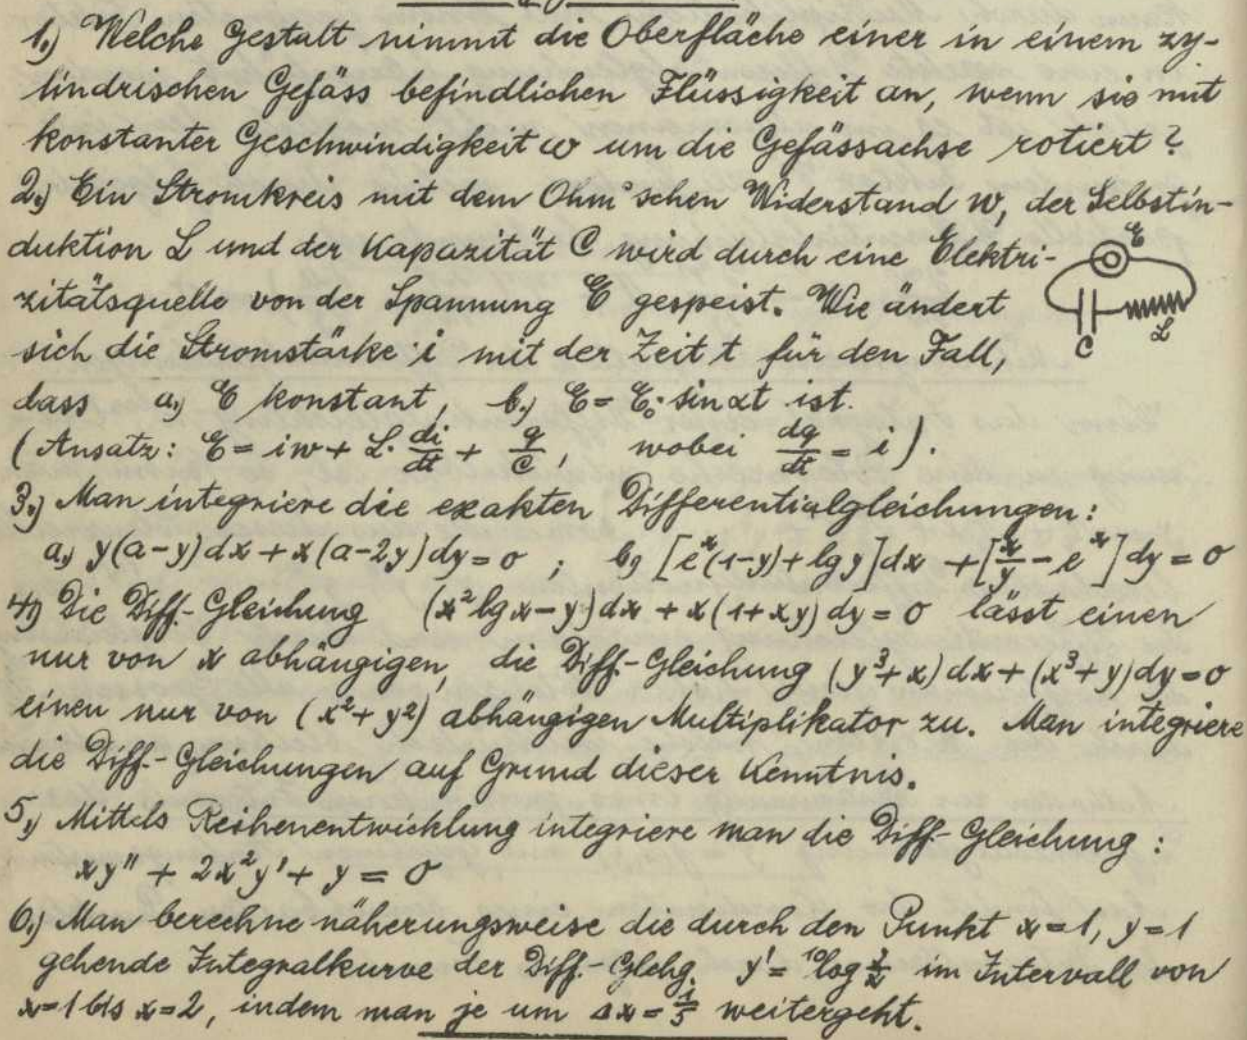 1.) Welche Gestalt nimmt die Oberfläche einer in einem zy-
lindrischen Gefäss befindlichen Flüssigkeit an, wenn sie mit
konstanter Geschwindigkeit ω um die Gefässachse rotiert?
2.) Ein Stromkreis mit dem Ohm'schen Widerstand w, der Selbstin-
duktion L und der Kapazität C wird durch eine Elektri-
zitätsquelle von der Spannung E gespeist. Wie ändert
sich die Stromstärke i mit der Zeit t für den Fall,
dass a.) E konstant, b.) E = E₀·sin αt ist.
(Ansatz: E = iw + L·di/dt + q/C, wobei dq/dt = i).
E
C
L
3.) Man integriere die exakten Differentialgleichungen:
a.) y(a-y)dx + x(a-2y)dy = 0 ; b.) [eˣ(1-y) + lg y]dx + [x/y - eˣ]dy = 0
4.) Die Diff.-Gleichung (x² lg x - y)dx + x(1+xy)dy = 0 lässt einen
nur von x abhängigen, die Diff.-Gleichung (y³+x)dx + (x³+y)dy = 0
einen nur von (x²+y²) abhängigen Multiplikator zu. Man integriere
die Diff.-Gleichungen auf Grund dieser Kenntnis.
5.) Mittels Reihenentwicklung integriere man die Diff.-Gleichung:
xy'' + 2x²y' + y = 0
6.) Man berechne näherungsweise die durch den Punkt x=1, y=1
gehende Integralkurve der Diff.-Glchg. y' = ¹⁰log y/x im Intervall von
x=1 bis x=2, indem man je um Δx = 1/5 weitergeht.